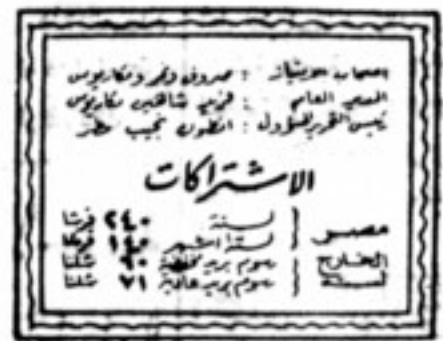 اصحاب الامتياز : صروف ونمر ومكاريوس
المدير العام : فريد شاهين مكاريوس
رئيس التحرير المسؤول : انطون نجيب مطر
الاشتراكات
مصر { لسنة ٢٤٠ قرشا
لستة اشهر ١٤٠ قرشا
الخارج لسنة { رسوم بريد مخفضة ٩٠ شلنا
رسوم بريد عادية ٧١ شلنا